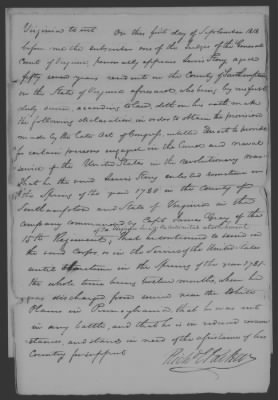 Virginia to wit On this first day of September 1818
before me the subscriber one of the Judges of the General
Court of Virginia, personally appears Lewis Story, aged
fifty seven years resident in the County of Southampton
in the State of Virginia aforesaid, who being by me first
duly sworn, according to Law, doth on his oath make
the following declaration in order to obtain the provision
made by the late Act of Congress, entitled "An act to provide
for certain persons engaged in the land and naval
service of the United States in the revolutionary war"
That he the said Lewis Story enlisted sometime in
the Spring of the year 1780 in the county of
Southampton and State of Virginia in the
company commanded by Capt James Gray of the
15th Regiment, of the Virginia line on Continental establishment
that he continued to serve in
the said Corps or in the Service of the United States
until sometime in the Spring of the year 1781
the whole time being twelve months, when he
was discharged from service near the White
Plains in Pennsylvania, that he was not
in any battle, and that he is in reduced circum
stances, and stands in need of the assistance of his
Country for support